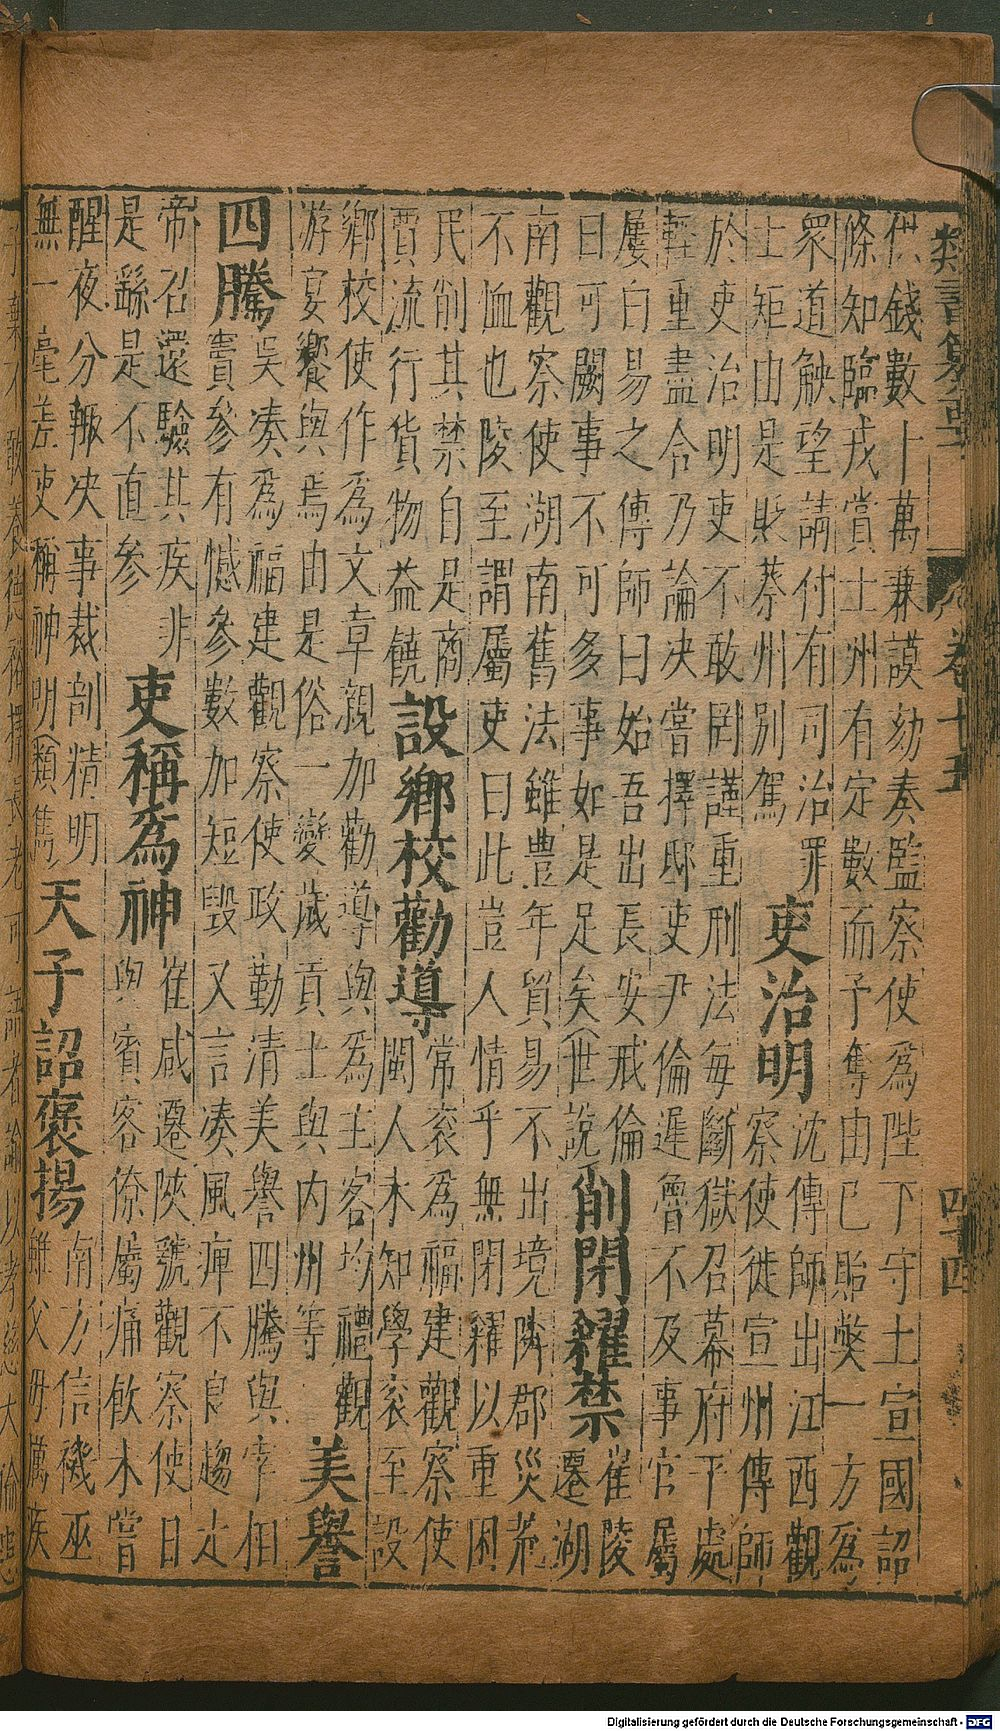 類書纂要 卷十五 四十四
供錢數十萬兼謨劾奏監察使為陛下守土宣國詔
條知臨戎賞士州有定數而予奪由已貽獘一方為
衆道觖望請付有司治罪
士矩由是貶蔡州別駕
吏治明
沈傳師出江西觀
察使徙宣州傳師
於吏治明吏不敢罔謹重刑法每斷獄召幕府平處
輕重盡合乃論决嘗擇邸吏尹倫遲魯不及事官屬
屢白易之傳師曰始吾出長安戒倫
曰可闕事不可多事如是足矣(世說
削閉糴禁
崔陵
遷湖
南觀察使湖南舊法雖豊年貿易不出境隣郡災荒
不恤也陵至謂屬吏曰此豈人情乎無閉糴以重困
民削其禁自是商
賈流行貨物益饒
設鄉校勸導
常衮為福建觀察使
閩人未知學衮至設
鄉校使作為文章親加勸導與為主客均禮觀
游宴饗與焉由是俗一變歲貢士與内州等
美譽
四騰
吳凑為福建觀察使政勤清美譽四騰與宰相
竇參有憾參數加短毀又言凑風痺不良趨走
帝召還驗其疾非
是繇是不直參
吏稱為神
崔咸遷陝虢觀察使日
與賓客僚屬痛飲未嘗
醒夜分輙决事裁剖精明
無一毫差吏稱神明(類雋)
天子詔褒揚
南方信禨巫
雖父毋萬疾
Digitalisierung gefördert durch die Deutsche Forschungsgemeinschaft - DFG